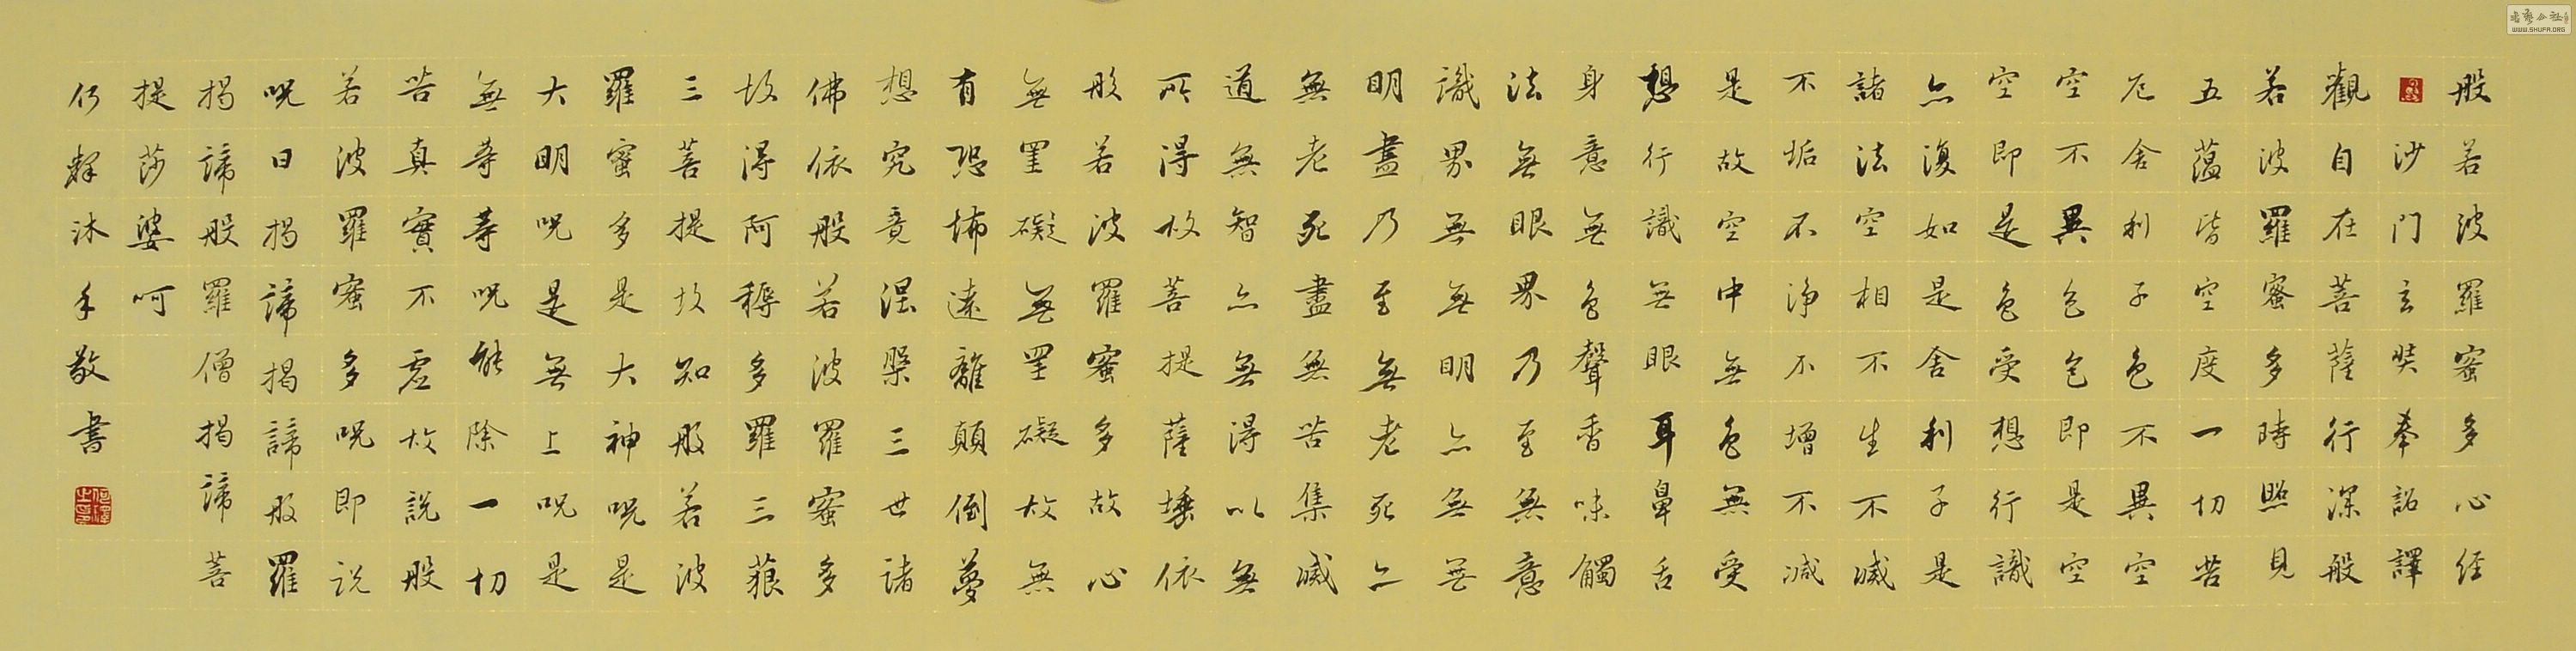 般若波羅蜜多心經
沙門玄奘奉詔譯
觀自在菩薩行深般
若波羅蜜多時照見
五蘊皆空度一切苦
厄舍利子色不異空
空不異色色即是空
空即是色受想行識
亦復如是舍利子是
諸法空相不生不滅
不垢不淨不增不減
是故空中無色無受
想行識無眼耳鼻舌
身意無色聲香味觸
法無眼界乃至無意
識界無無明亦無無
明盡乃至無老死亦
無老死盡無苦集滅
道無智亦無得以無
所得故菩提薩埵依
般若波羅蜜多故心
無罣礙無罣礙故無
有恐怖遠離顛倒夢
想究竟涅槃三世諸
佛依般若波羅蜜多
故得阿耨多羅三藐
三菩提故知般若波
羅蜜多是大神呪是
大明呪是無上呪是
無等等呪能除一切
苦真實不虛故說般
若波羅蜜多呪即說
呪曰揭諦揭諦般羅
揭諦般羅僧揭諦菩
提莎婆呵
沐手敬書
書藝公社
WWW.SHUFA.ORG